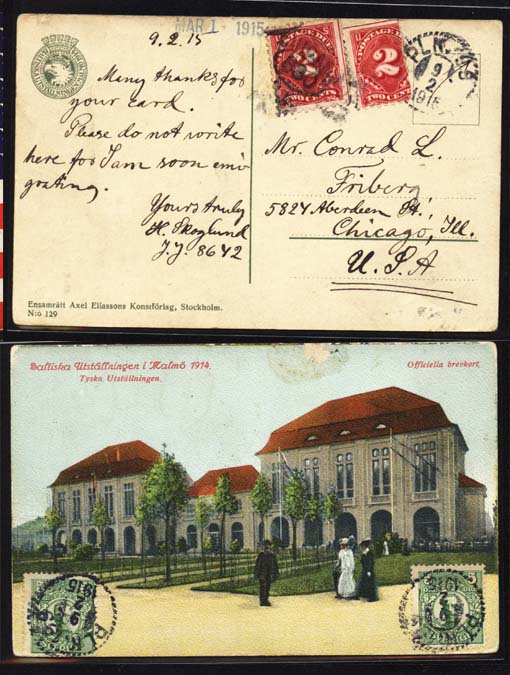 9.2.15
MAR 1 1915
Many thanks for
your card.
Please do not write
here for I am soon emi-
grating.
Yours truly
H. Skoglund
J.J. 8642
Ensamrätt Axel Eliassons Konstförlag, Stockholm.
N:o 129
POSTAGE DUE
2
TWO CENTS
POSTAGE DUE
2
TWO CENTS
PLK
9
2
1915
Mr. Conrad L.
Friberg
5824 Aberdeen St.,
Chicago, Ill.
U.S.A
Baltiska Utställningen i Malmö 1914.
Tyska Utställningen.
Officiella brevkort.
5
5